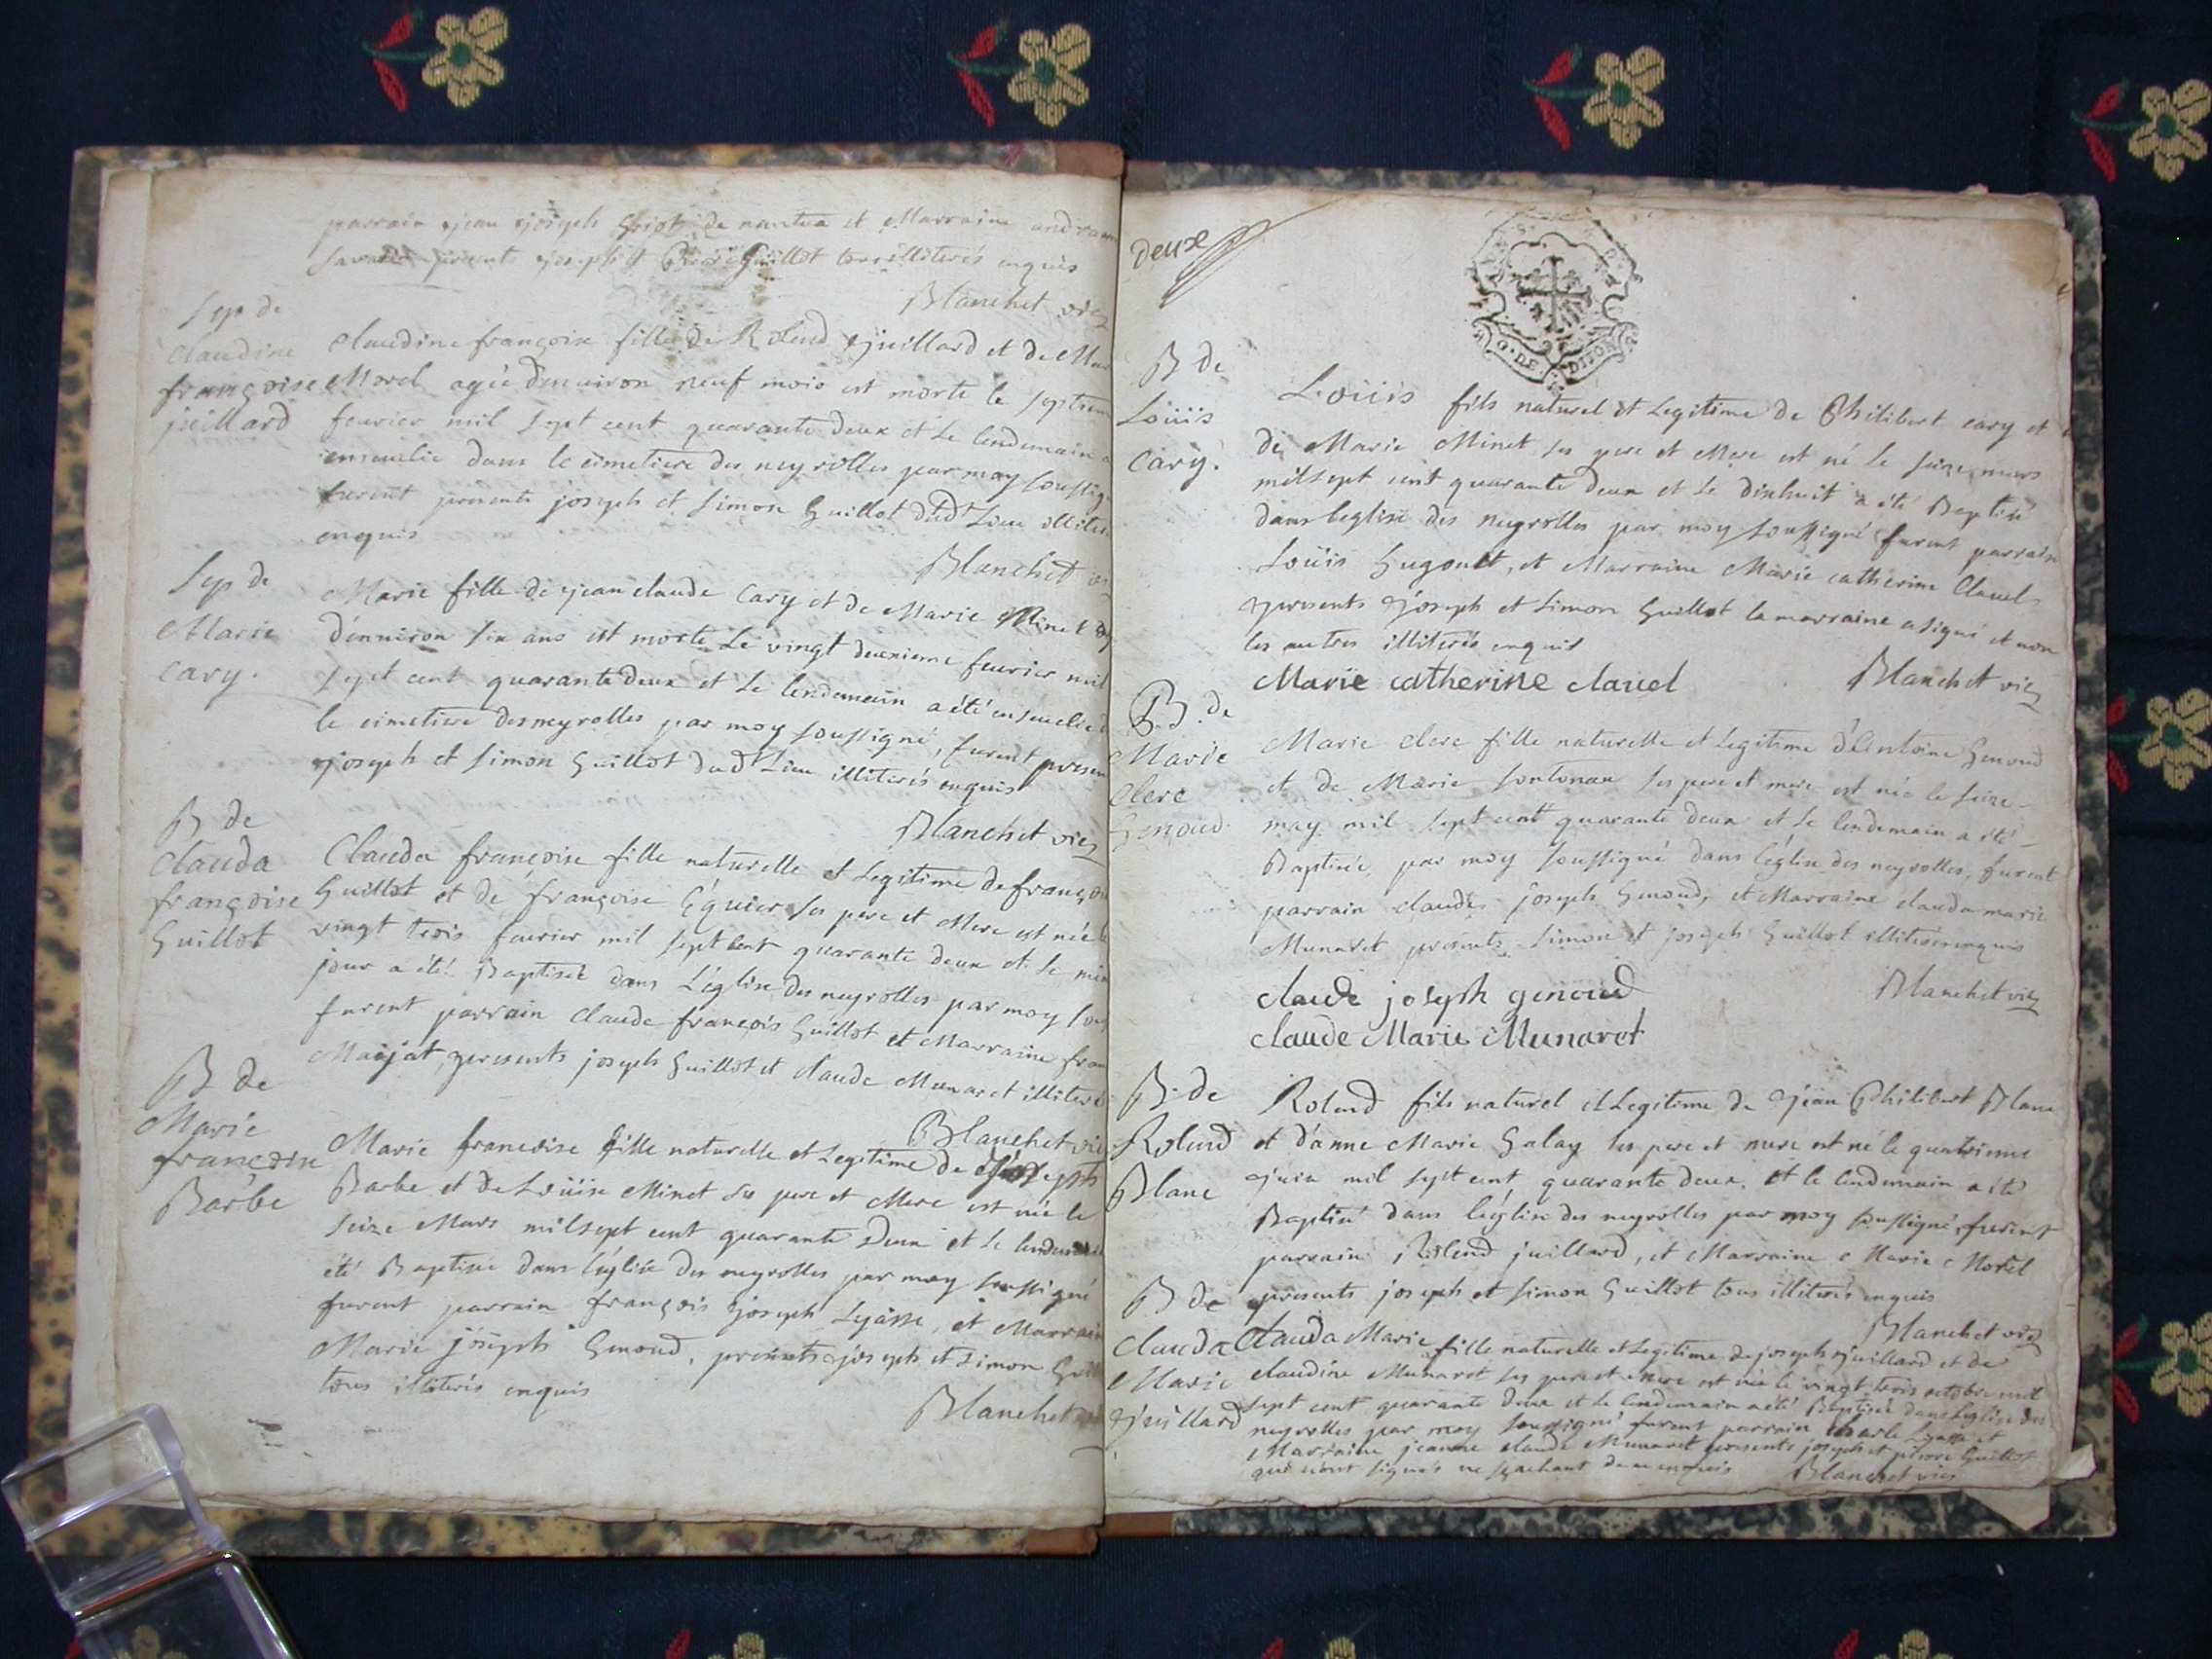 parrain jean joseph de nantua et Marraine
presents joseph et Guillot tous illiterés enquis
Blanchet vic
Sep de
claudine
françoise
juillard
Claudine françoise fille de Rolend juillard et de
Morel agée denuiron neuf mois est morte le
feurier mil sept cent quarante deux et le lendemain
enseuelie dans le cimetiere des neyrolles par moy
furent presents joseph et simon Guillot dud lieu
enquis
Blanchet
Sep de
Marie
Cary.
Marie fille de jean claude Cary et de Marie Minet
d'enuiron six ans est morte Le vingt deuxieme feurier mil
sept cent quarante deux et le lendemain a été enseuelie
le cimetiere des neyrolles par moy soussigné, furent
joseph et simon Guillot dud Lieu illiterés enquis
Blanchet vic
B de
Clauda
françoise
Guillot
Clauda françoise fille naturelle et Legitime de
Guillot et de françoise Ses pere et Mere est née
vingt trois feurier mil sept cent quarante deux et le
jour a été Baptisée dans L'église des neyrolles par moy
furent parrain Claude françois Guillot et Marraine
presents joseph Guillot et claude Munaret
Blanchet vic
B de
Marie
françoise
Barbe
Marie francoise fille naturelle et Legitime de joseph
Barbe et de Loüise Minet ses pere et Mere est née le
seize Mars mil sept cent quarante deux et le
été Baptisée dans l'église des neyrolles par moy soussigné
furent parrain françois joseph Lejasse, et
Marie joseph Genoud, presents joseph et simon
tous illiterés enquis
Blanchet
deux
G. DE DIJON
B de
Loüis
Cary.
Loüis fils naturel et Legitime de Philibert cary et
de Marie Minet ses pere et Mere est né le seize mars
mil sept cent quarante deux et le dixhuit a été Baptisé
dans leglise des neyrolles par moy soussigné furent parrain
Loüis Hugonet, et Marraine Marie catherine Clavel
presents joseph et simon Guillot la marraine a signé et non
les autres illiterés enquis
Marie catherine clavel
Blanchet vic
B. de
Marie
Clere
Genoud
Marie clere fille naturelle et Legitime d'Antoine Genoud
et de Marie sontonax ses pere et mere est née le seize
may mil sept cent quarante deux et le lendemain a été
Baptisée par moy soussigné dans l'église des neyrolles, furent
parrain claude joseph Genoud, et Marraine clauda marie
Munaret presents simon et joseph Guillot illiterés enquis
Blanchet vic
claude joseph genoud
claude Marie Munaret
B. de
Rolend
Blanc
Rolend fils naturel et Legitime de jean Philibert Blanc
et d'anne Marie Galay ses pere et mere est né le quatrieme
juin mil sept cent quarante deux et le lendemain a été
Baptisé dans l'église des neyrolles par moy soussigné furent
parrain Rolend juillard, et Marraine Marie Morel
presents joseph et simon Guillot tous illiterés enquis
Blanchet vic
B de
Clauda
Marie
juillard
Clauda Marie fille naturelle et Legitime de joseph juillard et de
claudine Munaret ses pere et Mere est née le vingt trois octobre mil
sept cent quarante deux et le lendemain a été Baptisée dans leglise des
neyrolles par moy soussigné furent parrain et
Marraine jeanne claude Munaret presents joseph et pierre Guillot
qui n'ont signés ne sçachant de ce enquis
Blanchet vic